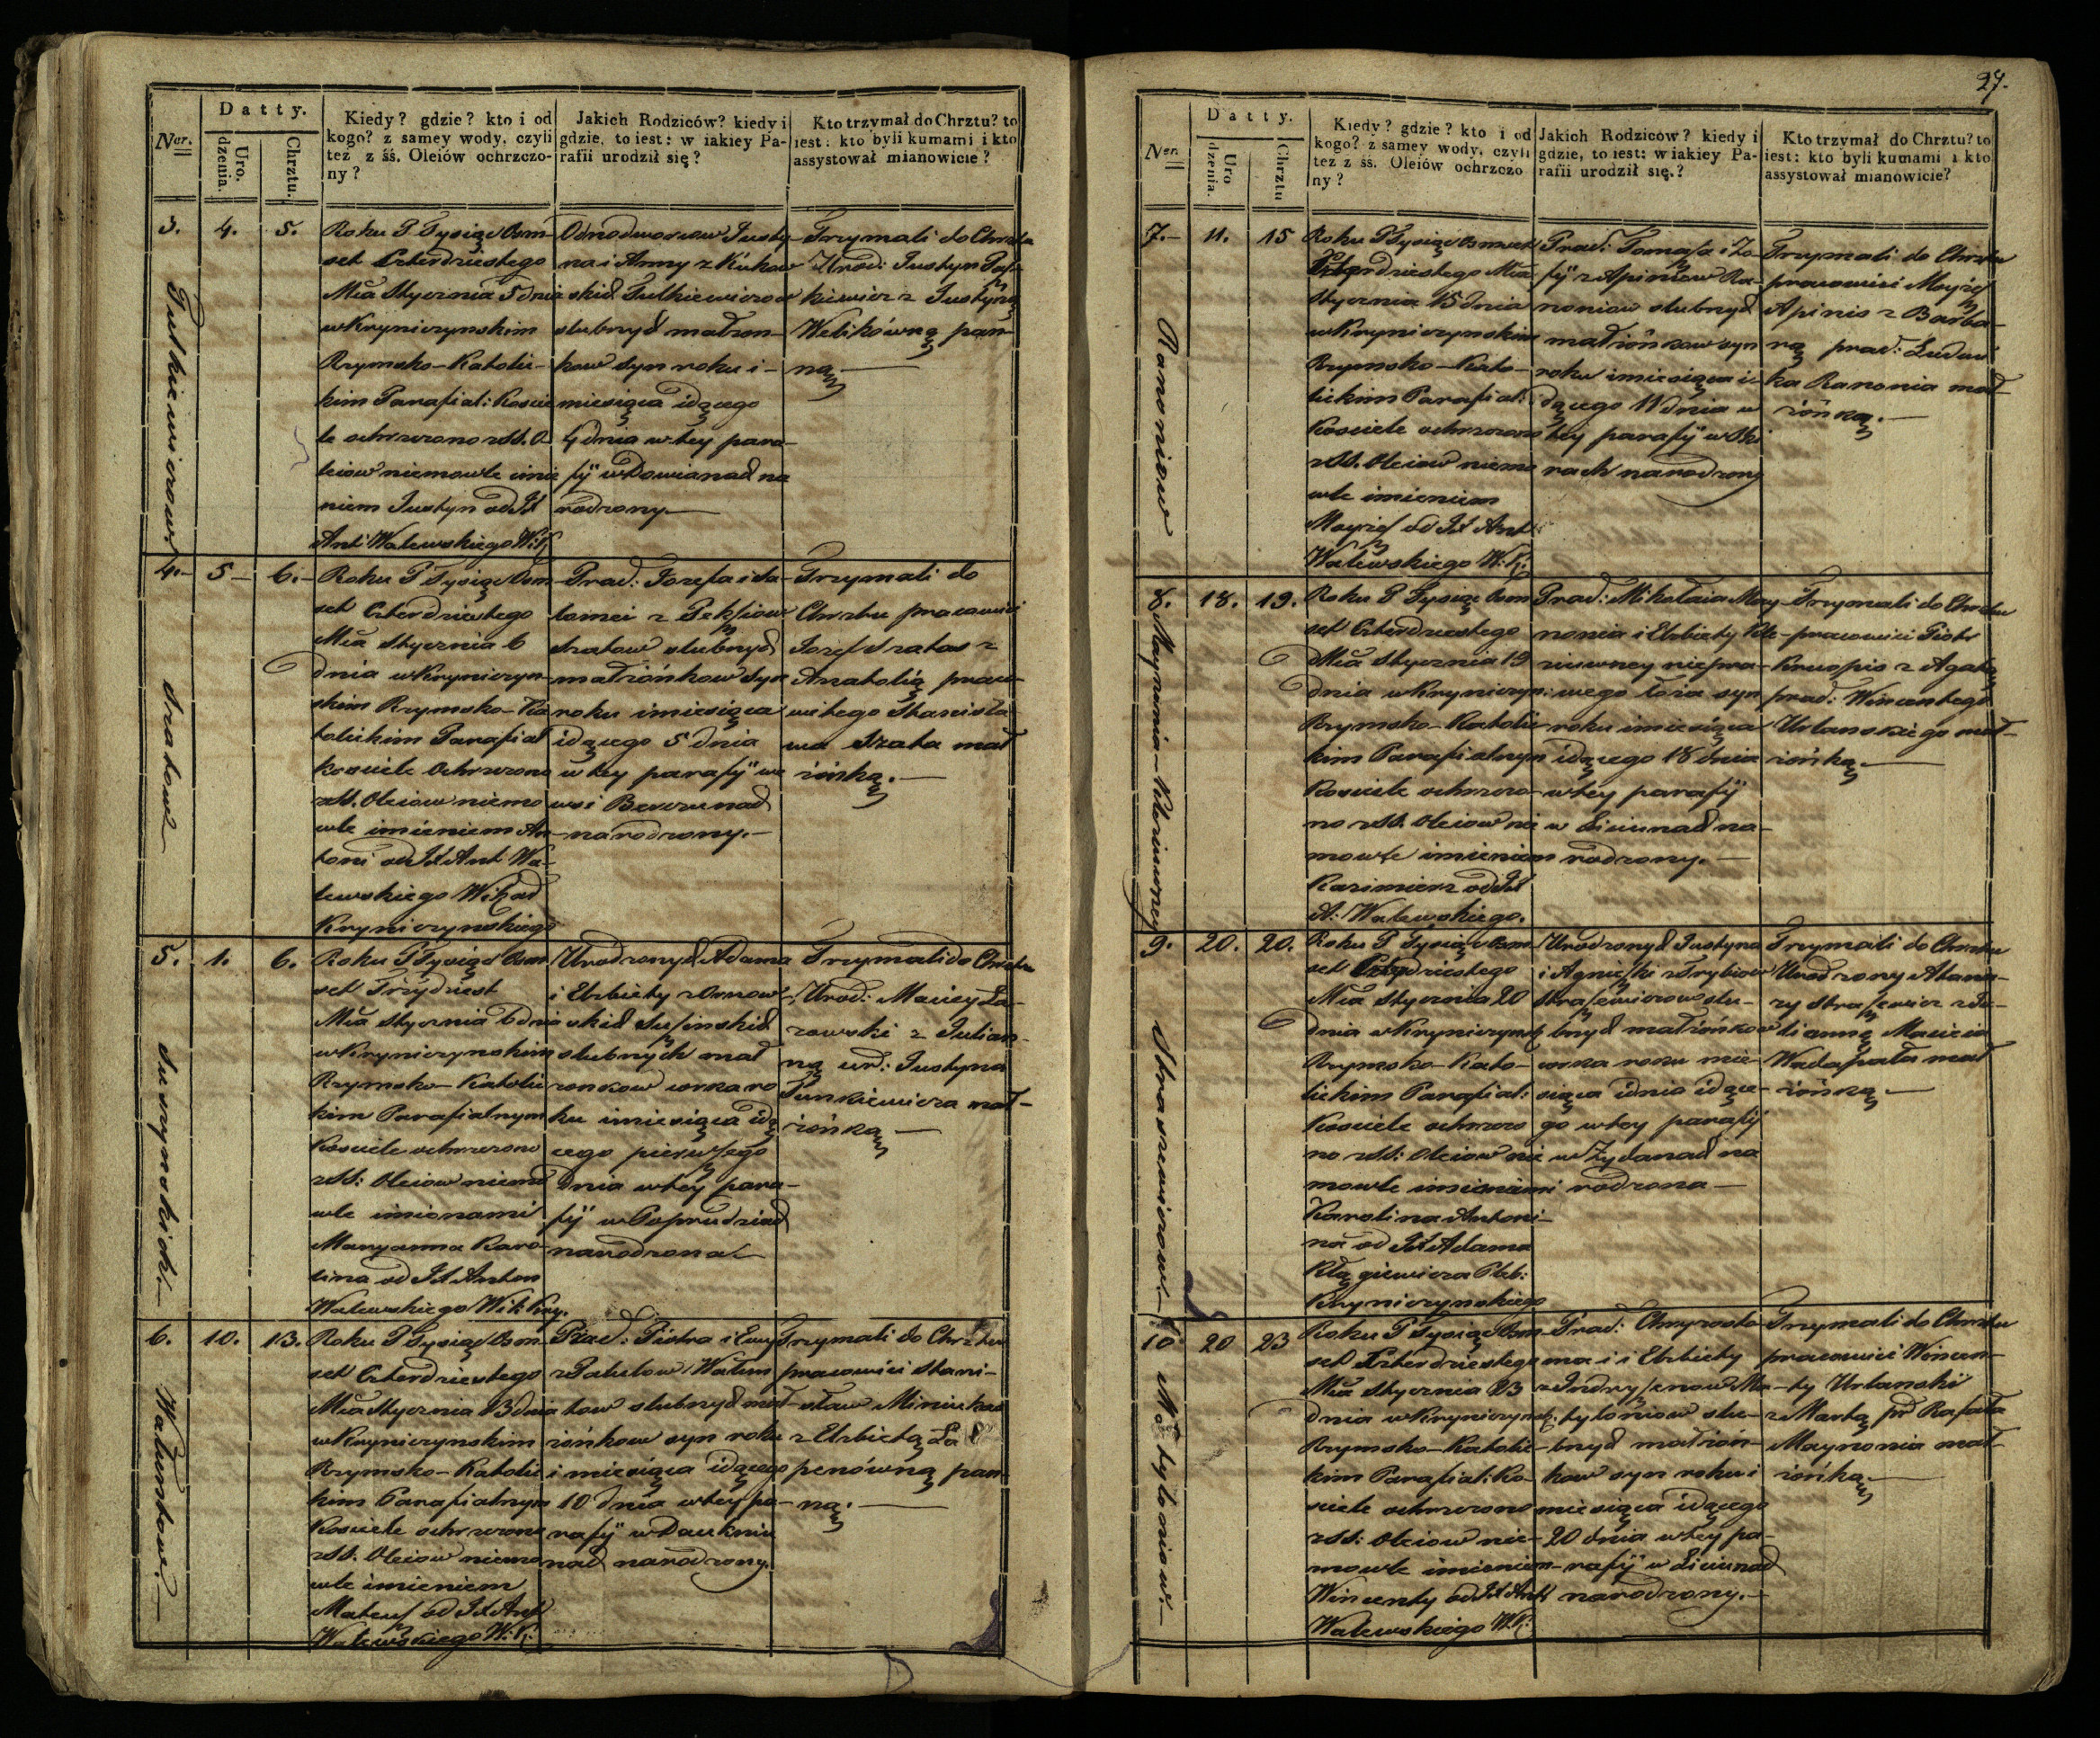 Ner.
Datty.
Uro.
dzenia.
Chrztu.
Kiedy? gdzie? kto i od
kogo? z samey wody, czyli
też z śś. Oleiów ochrzczo-
ny?
Jakich Rodziców? kiedy i
gdzie, to iest: w iakiey Pa-
rafii urodził się?
Kto trzymał do Chrztu? to
iest: kto byli kumami i kto
assystował mianowicie?
3.
4.
5.
Roku P. Tysiąc Ośm-
set Czterdziestego
Mća Stycznia 5 dnia
w Kryniczynskim
Rzymsko-Katolic-
kim Parafial: Koscie
le ochrzczono z SS. O
leiow niemowle imie
niem Justyn od JX
Ant: Walewskiego W:K:
Odnodworcow Justy-
na i Anny z
slubnych małzon-
kow syn roku i
miesiąca idącego
4 dnia w tey para-
fij w Dowianach na
rodzony.
Trzymali do Chrztu
Urod: Justyn
kiewicz z Justyną
Welikówną pan-
ną.
4.
5
6.
Roku P. Tysiąc Ośm
set Czterdziestego
Mća Stycznia 6
dnia w Kryniczyn-
skim Rzymsko-Ka
tolickim Parafial
kosciele Ochrzczono
z SS. Oleiow niemo
wle imieniem An-
toni od JX Ant: Wa-
lewskiego Wikad
Kryniczynskiego
Prac: Jozefa i Sa-
lomei z
Szatow slubnych
małżónkow Syn
roku i miesiąca
idącego 5 dnia
w tey parafij we
wsi
narodzony.
Trzymali do
Chrztu pracowici
Jozef Szatas z
Anatolią praco-
witego Stanisła
wa Szata mał
żónką.
Szatow
5.
1.
6.
Roku P. Tysiąc Ośm
set Trzydziest
Mća Stycznia 6 dnia
w Kryniczynskim
Rzymsko-Katolic
kim Parafialnym
Kosciele ochrzczono
z SS: Oleiow niemo
wle imionami
Maryanna Karo-
lina od JX Anton
Walewskiego Wik: Kry.
Urodzonych Adama
i Elzbiety z
skich Suszinskich
slubnych mał
zonkow corka ro
ku i miesiąca idą
cego pierwszego
dnia w tey para-
fij w Poprudziach
narodzona
Trzymali do Chrztu
Urod: Maciey Ła-
zowski z Julian-
ną ur: Justyna
Junkiewicza mał-
żónką
Suszynskich.
6.
10.
13.
Roku P Tysiąc Ośm
set Czterdziestego
Mća Stycznia 13 dnia
w Krynicynskim
Rzymsko-Katolic
kim Parafialnym
Kosciele ochrzczono
z SS. Oleiow niemo
wle imieniem
Mateusz od JX Ant
Walewskiego W:K:
Prac: Piotra i Ewy
z
tow slubnych mał-
żónkow syn roku
i miesiąca idącego
10 dnia w tey pa-
rafij w Daukniu
nach narodzony.
Trzymali do Chrztu
pracowici Stani-
sław
z Elzbietą Ła
penówną pan-
ną.
Waluntow.
27.
Ner.
Datty.
Uro
dzenia.
Chrztu
Kiedy? gdzie? kto i od
kogo? z samey wody, czyli
też z śś. Oleiów ochrzczo
ny?
Jakich Rodziców? kiedy i
gdzie, to iest: w iakiey Pa-
rafii urodził się.?
Kto trzymał do Chrztu? to
iest: kto byli kumami i kto
assystował mianowicie?
7.
11.
15
Roku P Tysiąc Osmset
Czterdziestego Mća
Stycznia 15 dnia
w Krynicynskim
Rzymsko-Kato-
lickim Parafial:
Kosciele ochrzczono
z SS. Oleiow niemo
wle imieniem
Moyżesz od JX Ant:
Walewskiego W:K:
Prac: Tomasza i Zo-
fij z Apiniow Ra-
noniow slubnych
małżónkow syn
roku i miesiąca i-
dącego 11 dnia w
tey parafij w
rach narodzony
Trzymali do Chrztu
pracowici Moyżesz
Apinis z Barba-
rą prac: Ludwi
ka Ranonia mał-
żónką.
Ranoniow
8.
18.
19.
Roku P Tysiąc Ośm
set Czterdziestego
Mća Stycznia 19
dnia w Krynicyn:
Rzymsko-Katolic
kim Parafialnym
Kosciele ochrzczo-
no z SS. Oleiow nie
mowle imieniem
Kazimierz od JX
A: Walewskiego.
Prac: Mikołaia May-
nonia i Elzbiety
ciuwney niepra-
wego łoża syn
roku i miesiąca
idącego 18 dnia
w tey parafij
w Liciunach na-
rodzony.
Trzymali do Chrztu
pracowici Piotr
z Agatą
prac: Wincentego
Urlanskiego mał-
żónką.
9.
20.
20.
Roku P Tysiąc Ośm
set Czterdziestego
Mća Stycznia 20
dnia w Krynicyns:
Rzymsko-Kato-
lickim Parafial:
Kosciele ochrzczo
no z SS: Oleiow nie
mowle imionami
Karolina Antoni-
na od JX Adama
Kłągiewicza Pleb:
Krynicynskiego
Urodzonych Justyna
i Agnieszki z Trybiow
Straszewiczow slu-
bnych małżónkow
corka roku mie-
siąca i dnia idące-
go w tey parafij
w Żydanach na
rodzona
Trzymali do Chrztu
Urodzony Atana-
zy Straszewicz z Ju-
lianną Macieia
mał
żónką.
Straszewiczow.
10
20
23
Roku P Tysiąc Ośm
set Czterdziestego
Mća Stycznia 23
dnia w Krynicyns:
Rzymsko-Katolic-
kim Parafial: Ko-
sciele ochrzczono
z SS: Oleiow nie-
mowle imieniem
Wincenty od JX Ant
Walewskiego W.K:
Prac: Chryzosto-
ma i i Elzbiety
z Ma-
tyloniow slu-
bnych małżón-
kow syn roku i
miesiąca idącego
20 dnia w tey pa-
rafij w Liciunach
narodzony.
Trzymali do Chrztu
pracowici Wincen-
ty Urlanski
z Martą pr Rafała
Maynonia mał-
żónką.
Matyloniow.